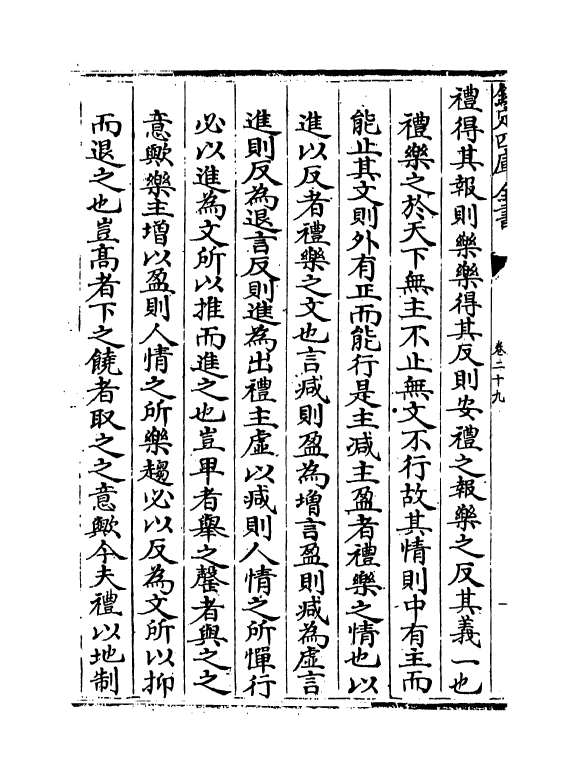 欽定四庫全書
卷二十九
禮得其報則樂樂得其反則安禮之報樂之反其義一也
禮樂之於天下無主不止無文不行故其情則中有主而
能止其文則外有正而能行是主減主盈者禮樂之情也以
進以反者禮樂之文也言減則盈為增言盈則減為虛言
進則反為退言反則進為出禮主虛以減則人情之所憚行
必以進為文所以推而進之也豈卑者舉之罄者與之之
意歟樂主增以盈則人情之所樂趨必以反為文所以抑
而退之也豈髙者下之饒者取之之意歟今夫禮以地制